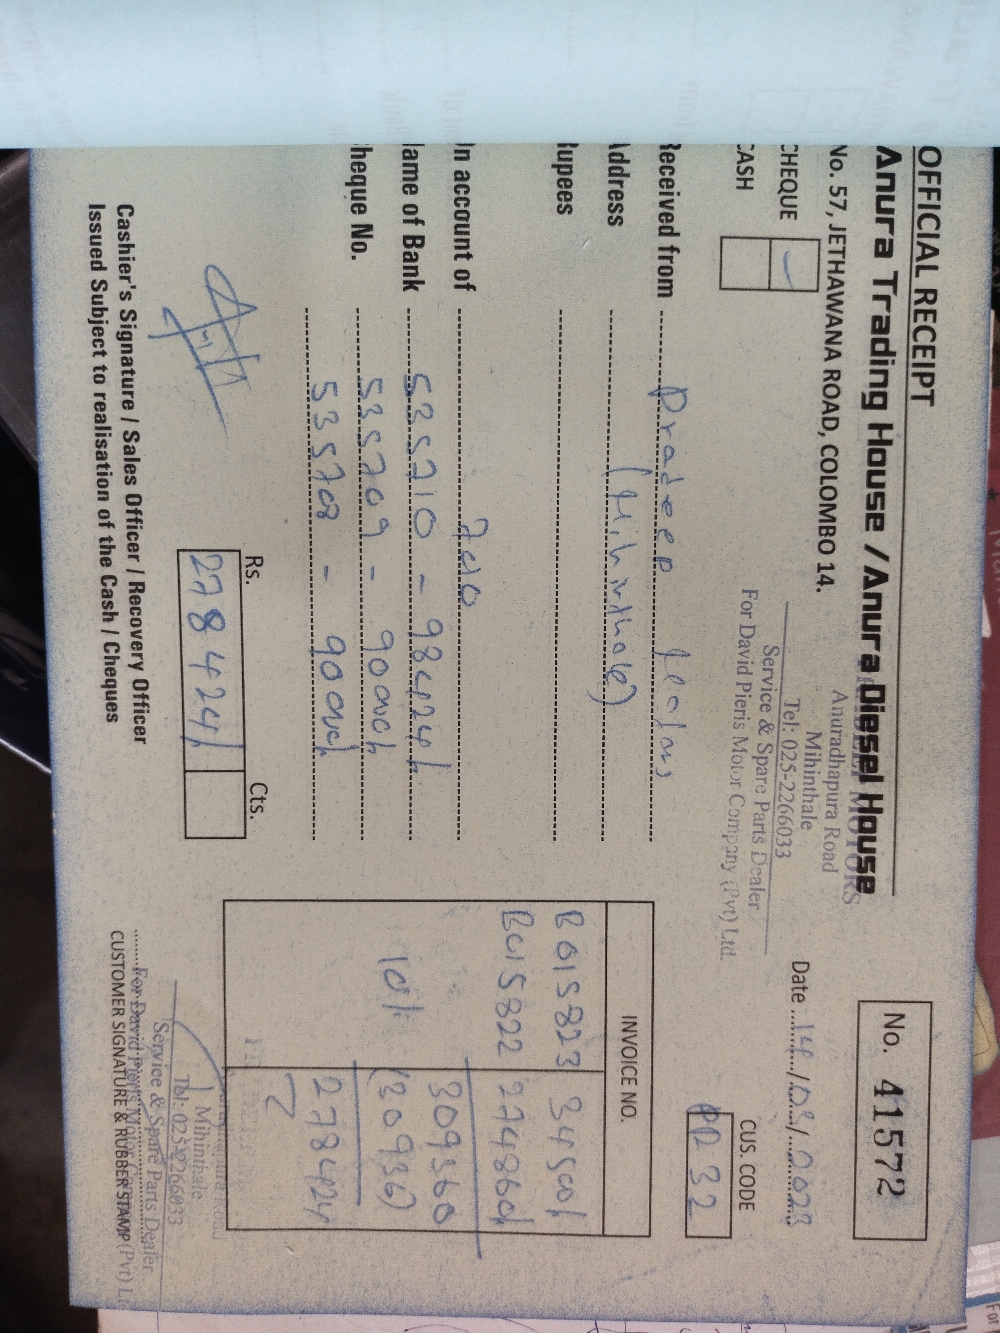 OFFICIAL RECEIPT
Anura Trading House / Anura Diesel House
No. 57, JETHAWANA ROAD, COLOMBO 14.
No. 41572
MOTORS
Anuradhapura Road
Mihinthale
Tel: 025-2266033
Service & Spare Parts Dealer
For David Pieris Motor Company (Pvt) Ltd.
Date 14/08/2023
CHEQUE
CASH
CUS. CODE
PR 32
Received from Pradeep
Address (Mihinthale)
Rupees
In account of
Name of Bank 535710 - 98424/
Cheque No. 535709 - 90000/
535708 - 90000/
INVOICE NO.
B015823 34500/
B015822 274860/
309360
10% (30936)
278424
Rs. Cts.
278424/
Cashier's Signature / Sales Officer / Recovery Officer
Issued Subject to realisation of the Cash / Cheques
Mihinthale
Tel: 025-2266033
Service & Spare Parts Dealer
For David Pieris Motor (Pvt)
CUSTOMER SIGNATURE & RUBBER STAMP